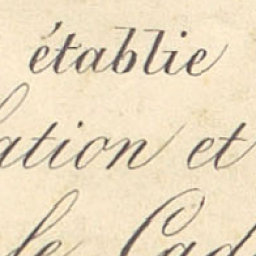 établie
ation et
le Cad